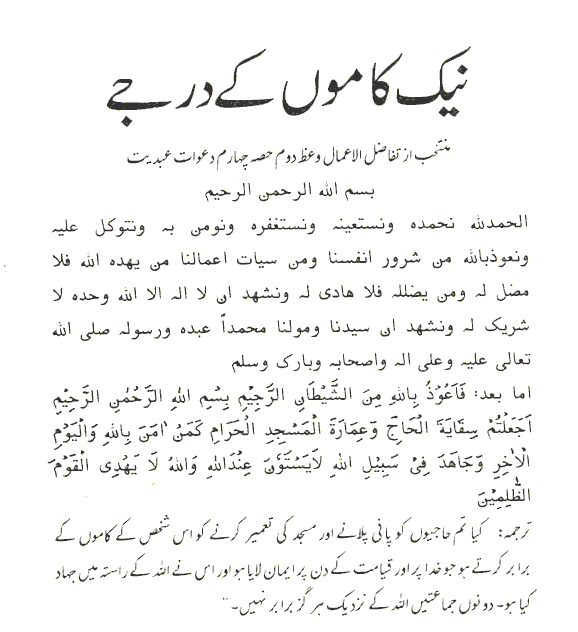 نیک کاموں کے درجے
منتخب از تفاضل الاعمال وعظ دوم حصہ چہارم دعوات عبدیت
بسم اللہ الرحمن الرحیم
الحمدللہ نحمدہ ونستعینہ ونستغفرہ ونومن بہ ونتوکل علیہ
ونعوذباللہ من شرور انفسنا ومن سیات اعمالنا من یھدہ اللہ فلا
مضل لہ ومن یضللہ فلا ھادی لہ ونشھد ان لا الہ الا اللہ وحدہ لا
شریک لہ ونشھد ان سیدنا ومولنا محمداً عبدہ ورسولہ صلی اللہ
تعالی علیہ وعلی الہ واصحابہ وبارک وسلم
اما بعد: فَاَعُوْذُ بِاللّٰہِ مِنَ الشَّیْطَانِ الرَّجِیْمِ بِسْمِ اللّٰہِ الرَّحْمٰنِ الرَّحِیْمِ
اَجَعَلْتُمْ سِقَایَۃَ الْحَاجِّ وَعِمَارَۃَ الْمَسْجِدِ الْحَرَامِ کَمَنْ اٰمَنَ بِاللّٰہِ وَالْیَوْمِ
الْاٰخِرِ وَجَاھَدَ فِیْ سَبِیْلِ اللّٰہِ لَایَسْتَوٗنَ عِنْدَاللّٰہِ وَاللّٰہُ لَا یَھْدِی الْقَوْمَ
الظّٰلِمِیْنَ
ترجمہ: کیا تم حاجیوں کو پانی پلانے اور مسجد کی تعمیر کرنے کو اس شخص کے کاموں کے
برابر کرتے ہو جو خدا پر اور قیامت کے دن پر ایمان لایا ہو اور اس نے اللہ کے راستہ میں جہاد
کیا ہو۔ دونوں جماعتیں اللہ کے نزدیک ہرگز برابر نہیں۔"